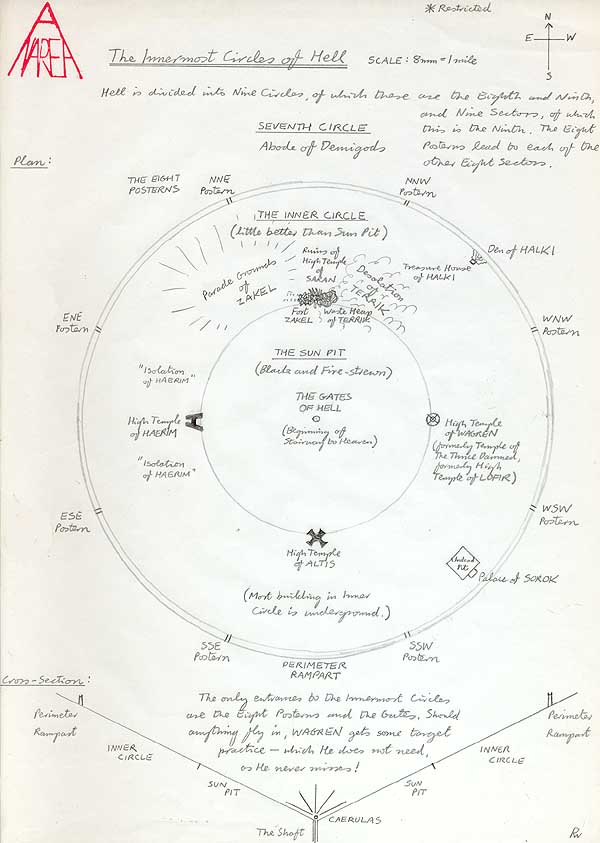 A
NAREA
* Restricted
N
E W
S
The Innermost Circles of Hell
SCALE: 8mm = 1 mile
Hell is divided into Nine Circles, of which these are the Eighth and Ninth,
and Nine Sectors, of which
this is the Ninth. The Eight
Posterns lead to each of the
other Eight Sectors.
SEVENTH CIRCLE
Abode of Demigods
Plan:
THE EIGHT
POSTERNS
NNE
Postern
NNW
Postern
THE INNER CIRCLE
(Little better than Sun Pit)
Parade Grounds
of
ZAKEL
Ruins of
High Temple
of
SARAN
Desolation
of
TERRIK
Treasure House
of HALKI
Den of HALKI
Fort
ZAKEL
Waste Heap
of TERRIK
ENE
Postern
WNW
Postern
THE SUN PIT
(Black and Fire-strewn)
"Isolation
of HAERIM"
THE GATES
OF HELL
(Beginning of
Stairway to Heaven)
High Temple
of HAERIM
High Temple
of WAGREN
(formerly Temple of
The Three Damned,
formerly High
Temple of LOFIR)
"Isolation
of HAERIM"
ESE
Postern
WSW
Postern
High Temple
of ALTIS
Undead
Pit
Palace of SOROK
(Most building in Inner
Circle is underground.)
SSE
Postern
SSW
Postern
PERIMETER
RAMPART
Cross-Section:
The only entrances to the Innermost Circles
are the Eight Posterns and the Gates. Should
anything fly in, WAGREN gets some target
practice — which He does not need,
as He never misses!
Perimeter
Rampart
Perimeter
Rampart
INNER
CIRCLE
INNER
CIRCLE
SUN
PIT
SUN
PIT
CAERULAS
The Shaft